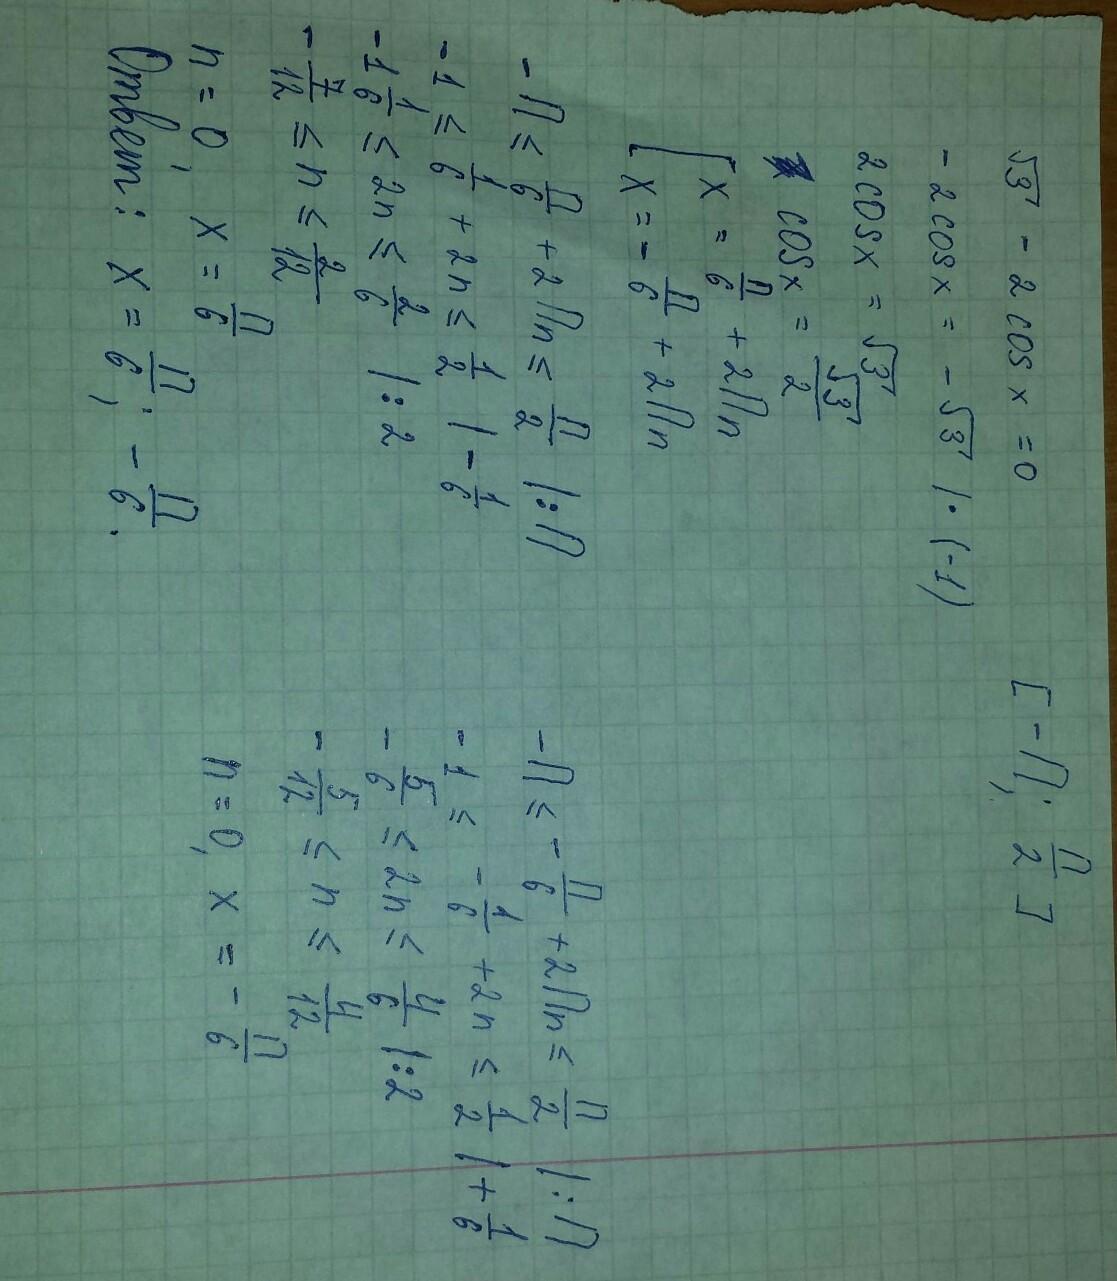 √3 - 2cosx = 0 [-π; π/2]
-2cosx = -√3 | · (-1)
2cosx = √3
cosx = √3/2
[ x = π/6 + 2πn
[ x = -π/6 + 2πn
-π ≤ π/6 + 2πn ≤ π/2 |:π
-1 ≤ 1/6 + 2n ≤ 1/2 | - 1/6
-1 1/6 ≤ 2n ≤ 2/6 |:2
-7/12 ≤ n ≤ 2/12
n = 0, x = π/6
-π ≤ -π/6 + 2πn ≤ π/2 |:π
-1 ≤ -1/6 + 2n ≤ 1/2 | + 1/6
-5/6 ≤ 2n ≤ 4/6 |:2
-5/12 ≤ n ≤ 4/12
n = 0, x = -π/6
Ответ: x = π/6; -π/6.